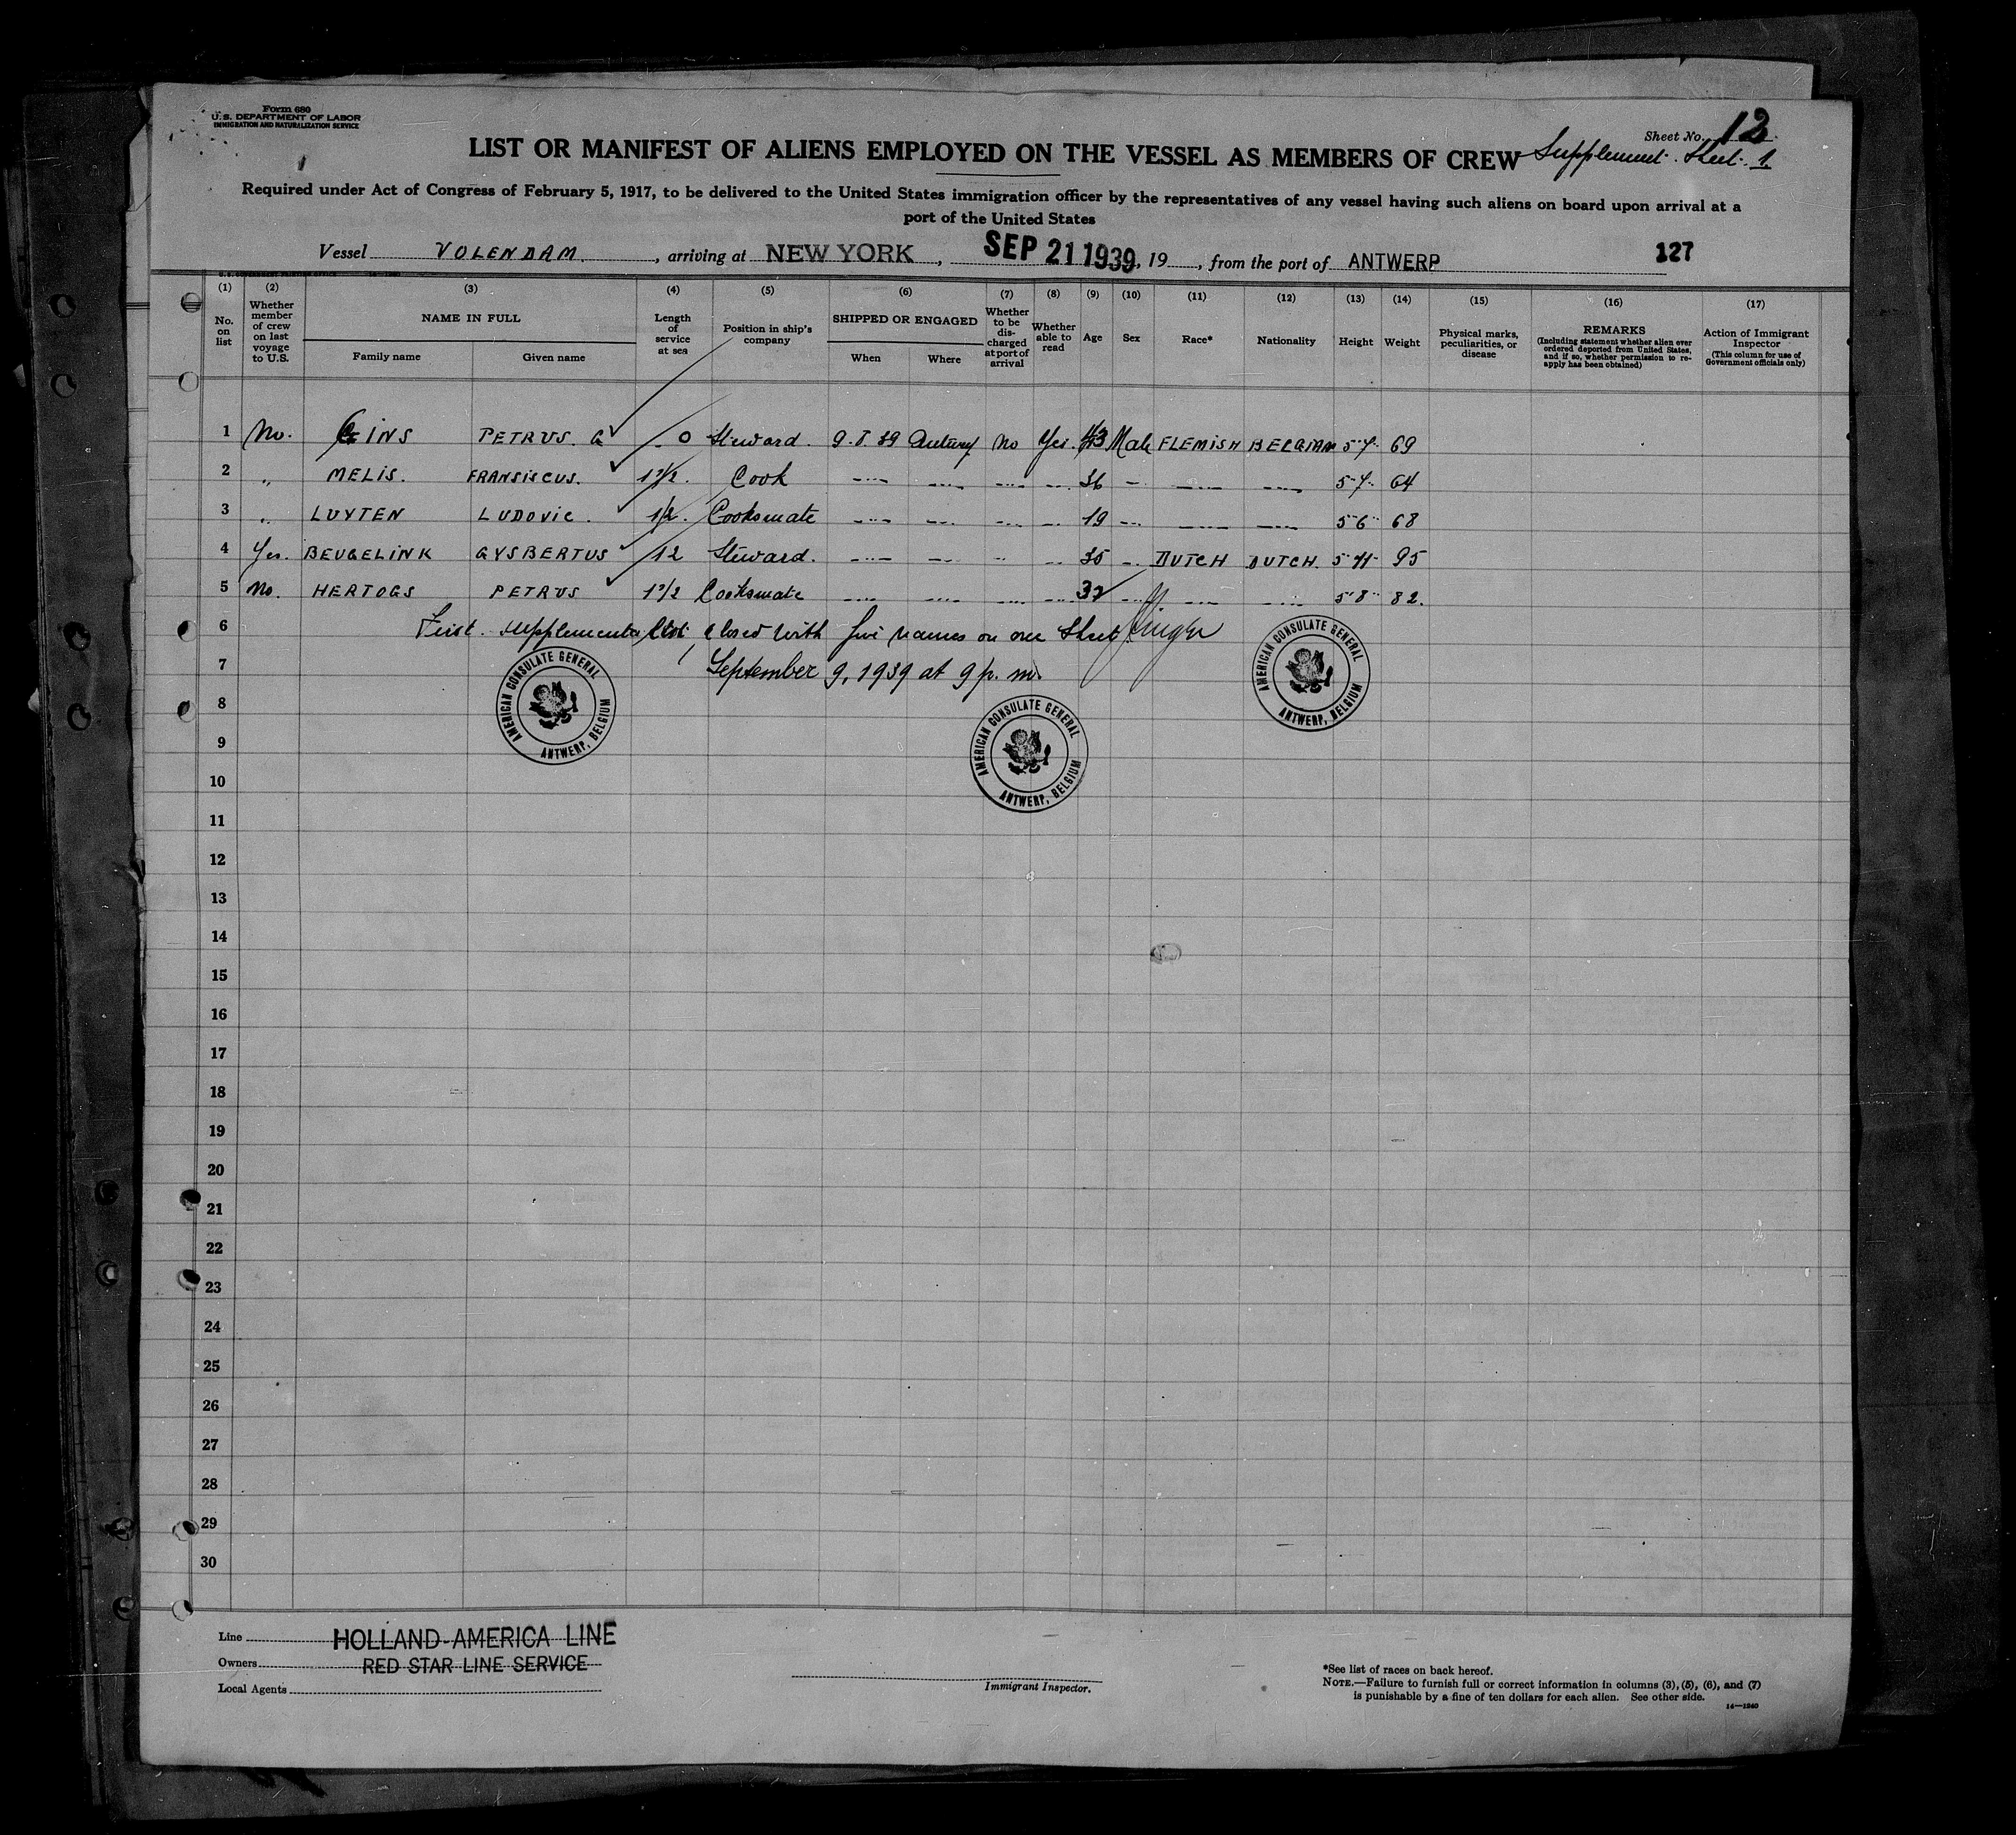 Form 680
U.S. DEPARTMENT OF LABOR
IMMIGRATION AND NATURALIZATION SERVICE
Sheet No. 12
LIST OR MANIFEST OF ALIENS EMPLOYED ON THE VESSEL AS MEMBERS OF CREW Supplement. Sheet. 1
Required under Act of Congress of February 5, 1917, to be delivered to the United States immigration officer by the representatives of any vessel having such aliens on board upon arrival at a
port of the United States
Vessel VOLENDAM, arriving at NEW YORK, SEP 21 1939, 19, from the port of ANTWERP 127
(1) No. on list
(2) Whether member of crew on last voyage to U.S.
(3) NAME IN FULL Family name Given name
(4) Length of service at sea
(5) Position in ship's company
(6) SHIPPED OR ENGAGED When Where
(7) Whether to be discharged at port of arrival
(8) Whether able to read
(9) Age
(10) Sex
(11) Race*
(12) Nationality
(13) Height
(14) Weight
(15) Physical marks, peculiarities, or disease
(16) REMARKS (Including statement whether alien ever ordered deported from United States, and if so, whether permission to reapply has been obtained)
(17) Action of Immigrant Inspector (This column for use of Government officials only)
1 No. GINS PETRUS. G 0 Steward. 9.8.39 Antwerp No Yes. 43 Male FLEMISH BELGIAN 5-7 69
2 " MELIS. FRANSISCUS. 1 1/2. Cook 36 5-7 64
3 " LUYTEN LUDOVIC. 1/2. Cooksmate 19 5 6 68
4 Yes. BEUGELINK GYSBERTUS 12 Steward. 35 DUTCH DUTCH. 5-11 95
5 No. HERTOGS PETRUS 1 1/2 Cooksmate 37 5 8 82.
6 First supplemental list closed with five names on one sheet
7 September 9, 1939 at 9 p.m.
AMERICAN CONSULATE GENERAL ANTWERP, BELGIUM
AMERICAN CONSULATE GENERAL ANTWERP, BELGIUM
AMERICAN CONSULATE GENERAL ANTWERP, BELGIUM
8
9
10
11
12
13
14
15
16
17
18
19
20
21
22
23
24
25
26
27
28
29
30
Line HOLLAND-AMERICA LINE
Owners RED STAR LINE SERVICE
Local Agents
Immigrant Inspector.
*See list of races on back hereof.
NOTE.—Failure to furnish full or correct information in columns (3), (5), (6), and (7)
is punishable by a fine of ten dollars for each alien. See other side.
14—1240